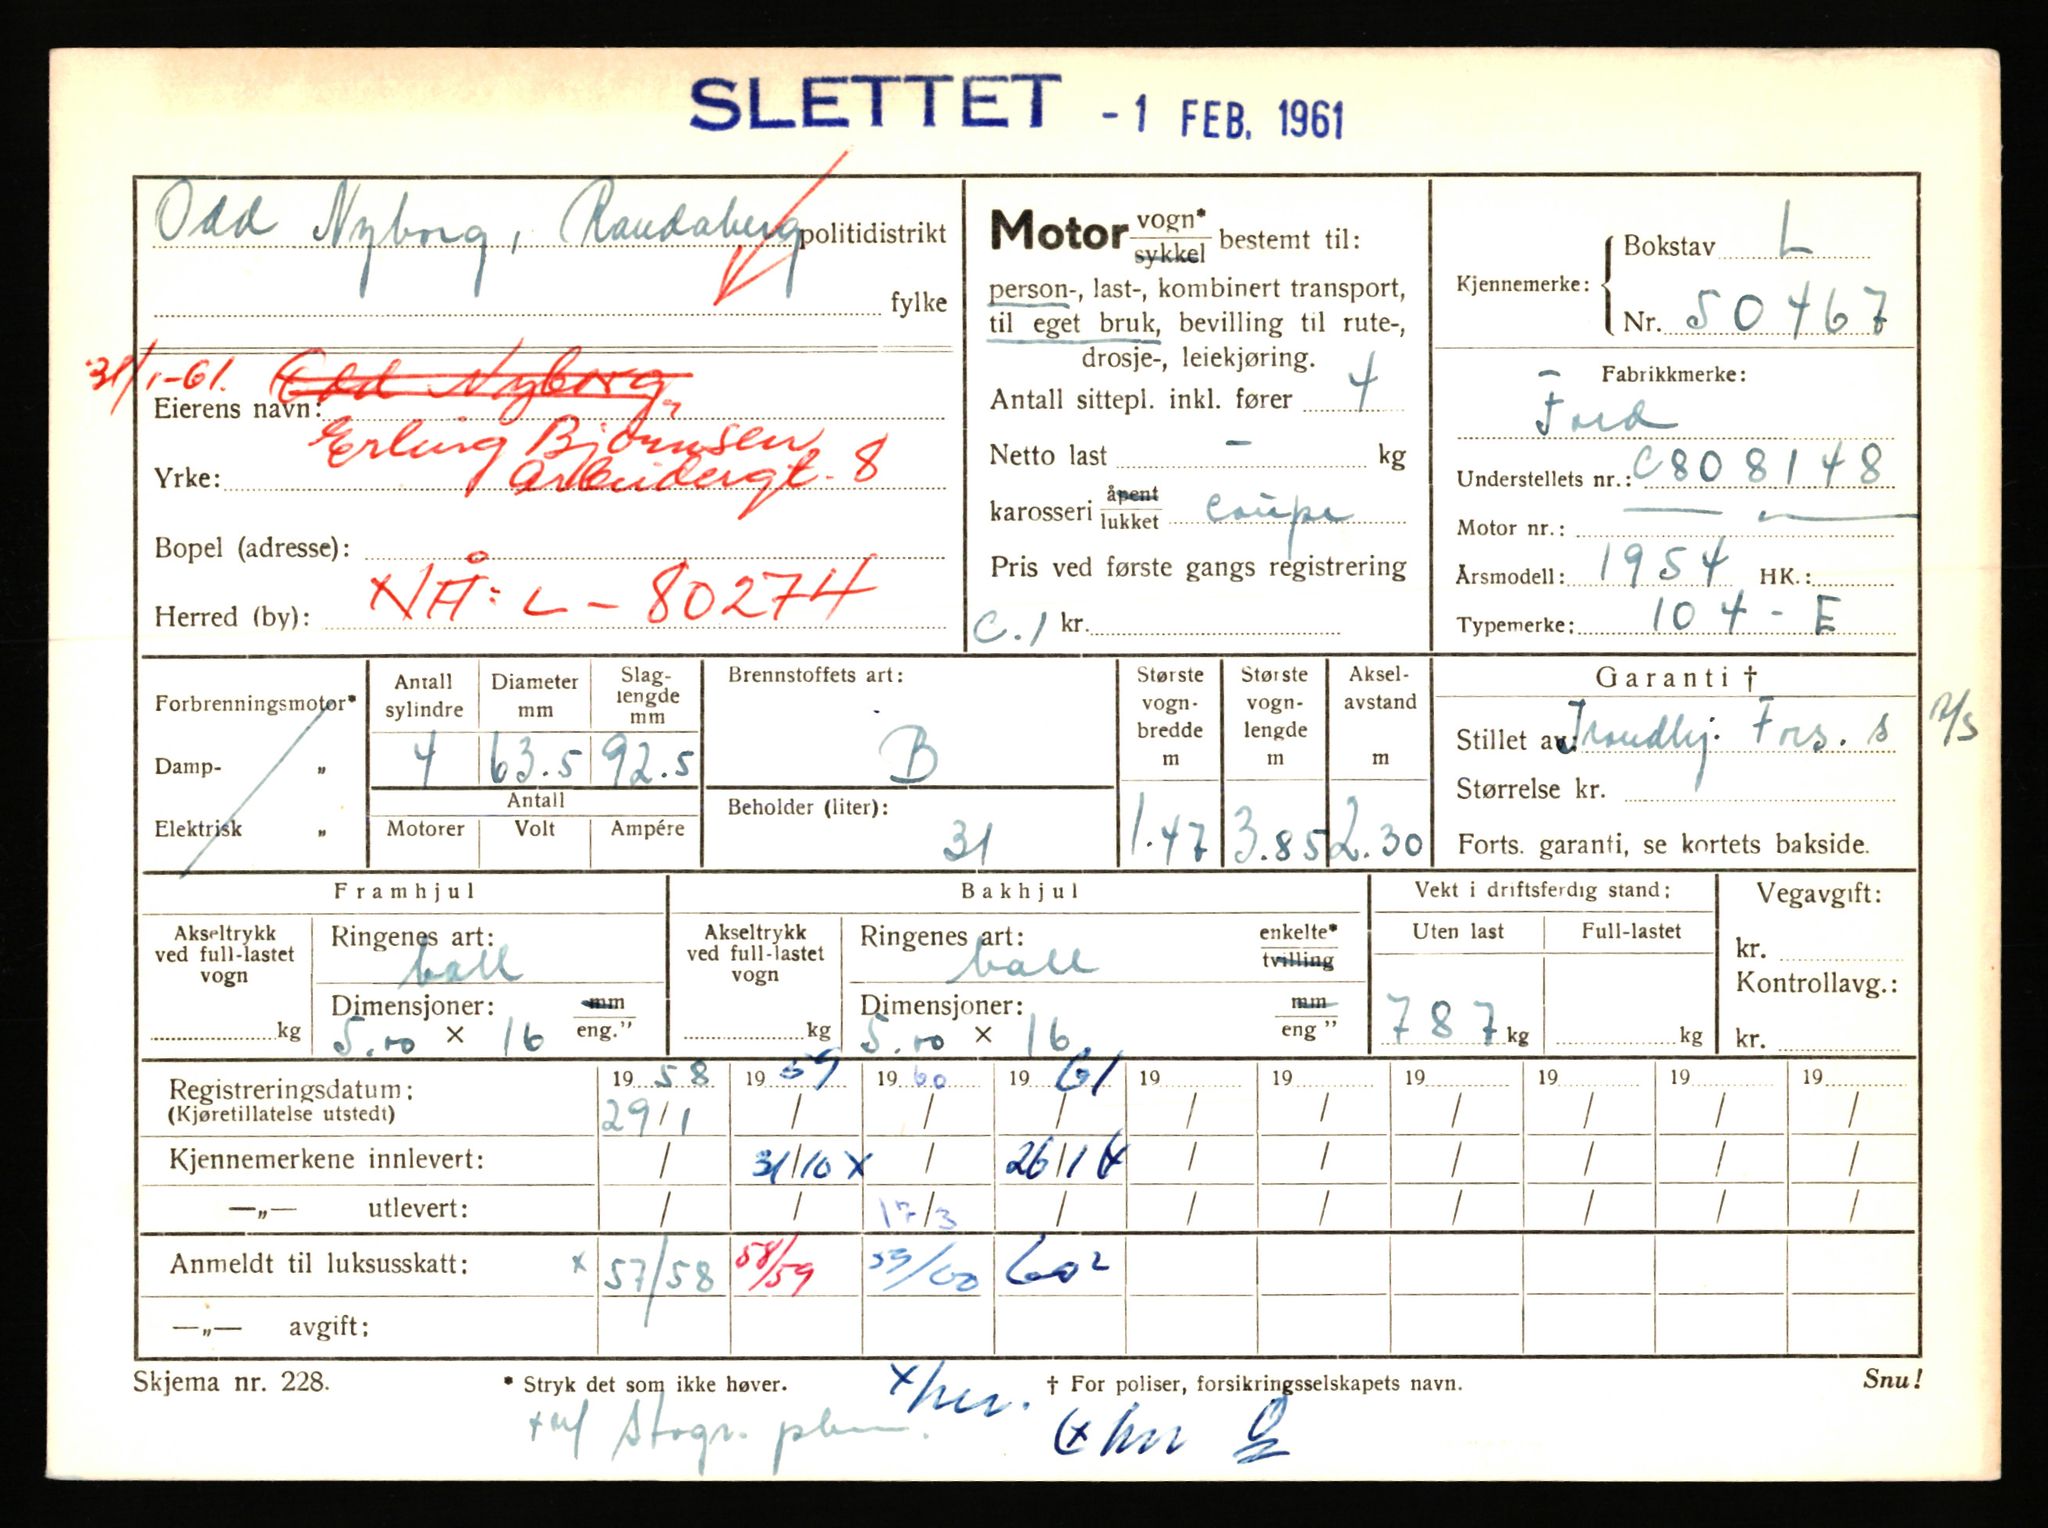 SLETTET - 1 FEB. 1961
Odd Nyborg, Randaberg politidistrikt
fylke
31/1-61. Odd Nyborg
Eierens navn:
Erling Bjørnsen
Yrke: Arbeidergt. 8
Bopel (adresse):
NÅ: L - 80274
Herred (by):
Motor vogn* sykkel bestemt til:
person-, last-, kombinert transport,
til eget bruk, bevilling til rute-,
drosje-, leiekjøring.
Antall sittepl. inkl. fører 4
Netto last - kg
karosseri åpent lukket coupe
Pris ved første gangs registrering
C.1 kr.
Kjennemerke: Bokstav L
Nr. 50467
Fabrikkmerke:
Ford
Understellets nr.: C808148
Motor nr.:
Årsmodell: 1954 HK.:
Typemerke: 104-E
Forbrenningsmotor*
Damp- „
Elektrisk „
Antall sylindre
Diameter mm
Slag-lengde mm
4 63.5 92.5
Antall
Motorer Volt Ampére
Brennstoffets art:
B
Beholder (liter):
31
Største vogn-bredde m
1.47
Største vogn-lengde m
3.85
Aksel-avstand m
2.30
Garanti †
Stillet av: Trondhj. Fors. s
Størrelse kr.
Forts. garanti, se kortets bakside.
Framhjul
Akseltrykk ved full-lastet vogn
kg
Ringenes art:
ball
Dimensjoner: mm
5.00 × 16 eng.”
Bakhjul
Akseltrykk ved full-lastet vogn
kg
Ringenes art: enkelte*
ball tvilling
Dimensjoner: mm
5.00 × 16 eng ”
Vekt i driftsferdig stand:
Uten last Full-lastet
787 kg kg
Vegavgift:
kr.
Kontrollavg.:
kr.
Registreringsdatum: 1958 1959 1960 1961 19 19 19 19 19 19
(Kjøretillatelse utstedt) 29/1 / / / / / / / / /
Kjennemerkene innlevert: / 31/10 x / 26/1 / / / / / /
—„— utlevert: / / 17/3 / / / / / / /
Anmeldt til luksusskatt: x 57/58 58/59 59/60 60²
—„— avgift:
Skjema nr. 228. * Stryk det som ikke høver. † For poliser, forsikringsselskapets navn. Snu!